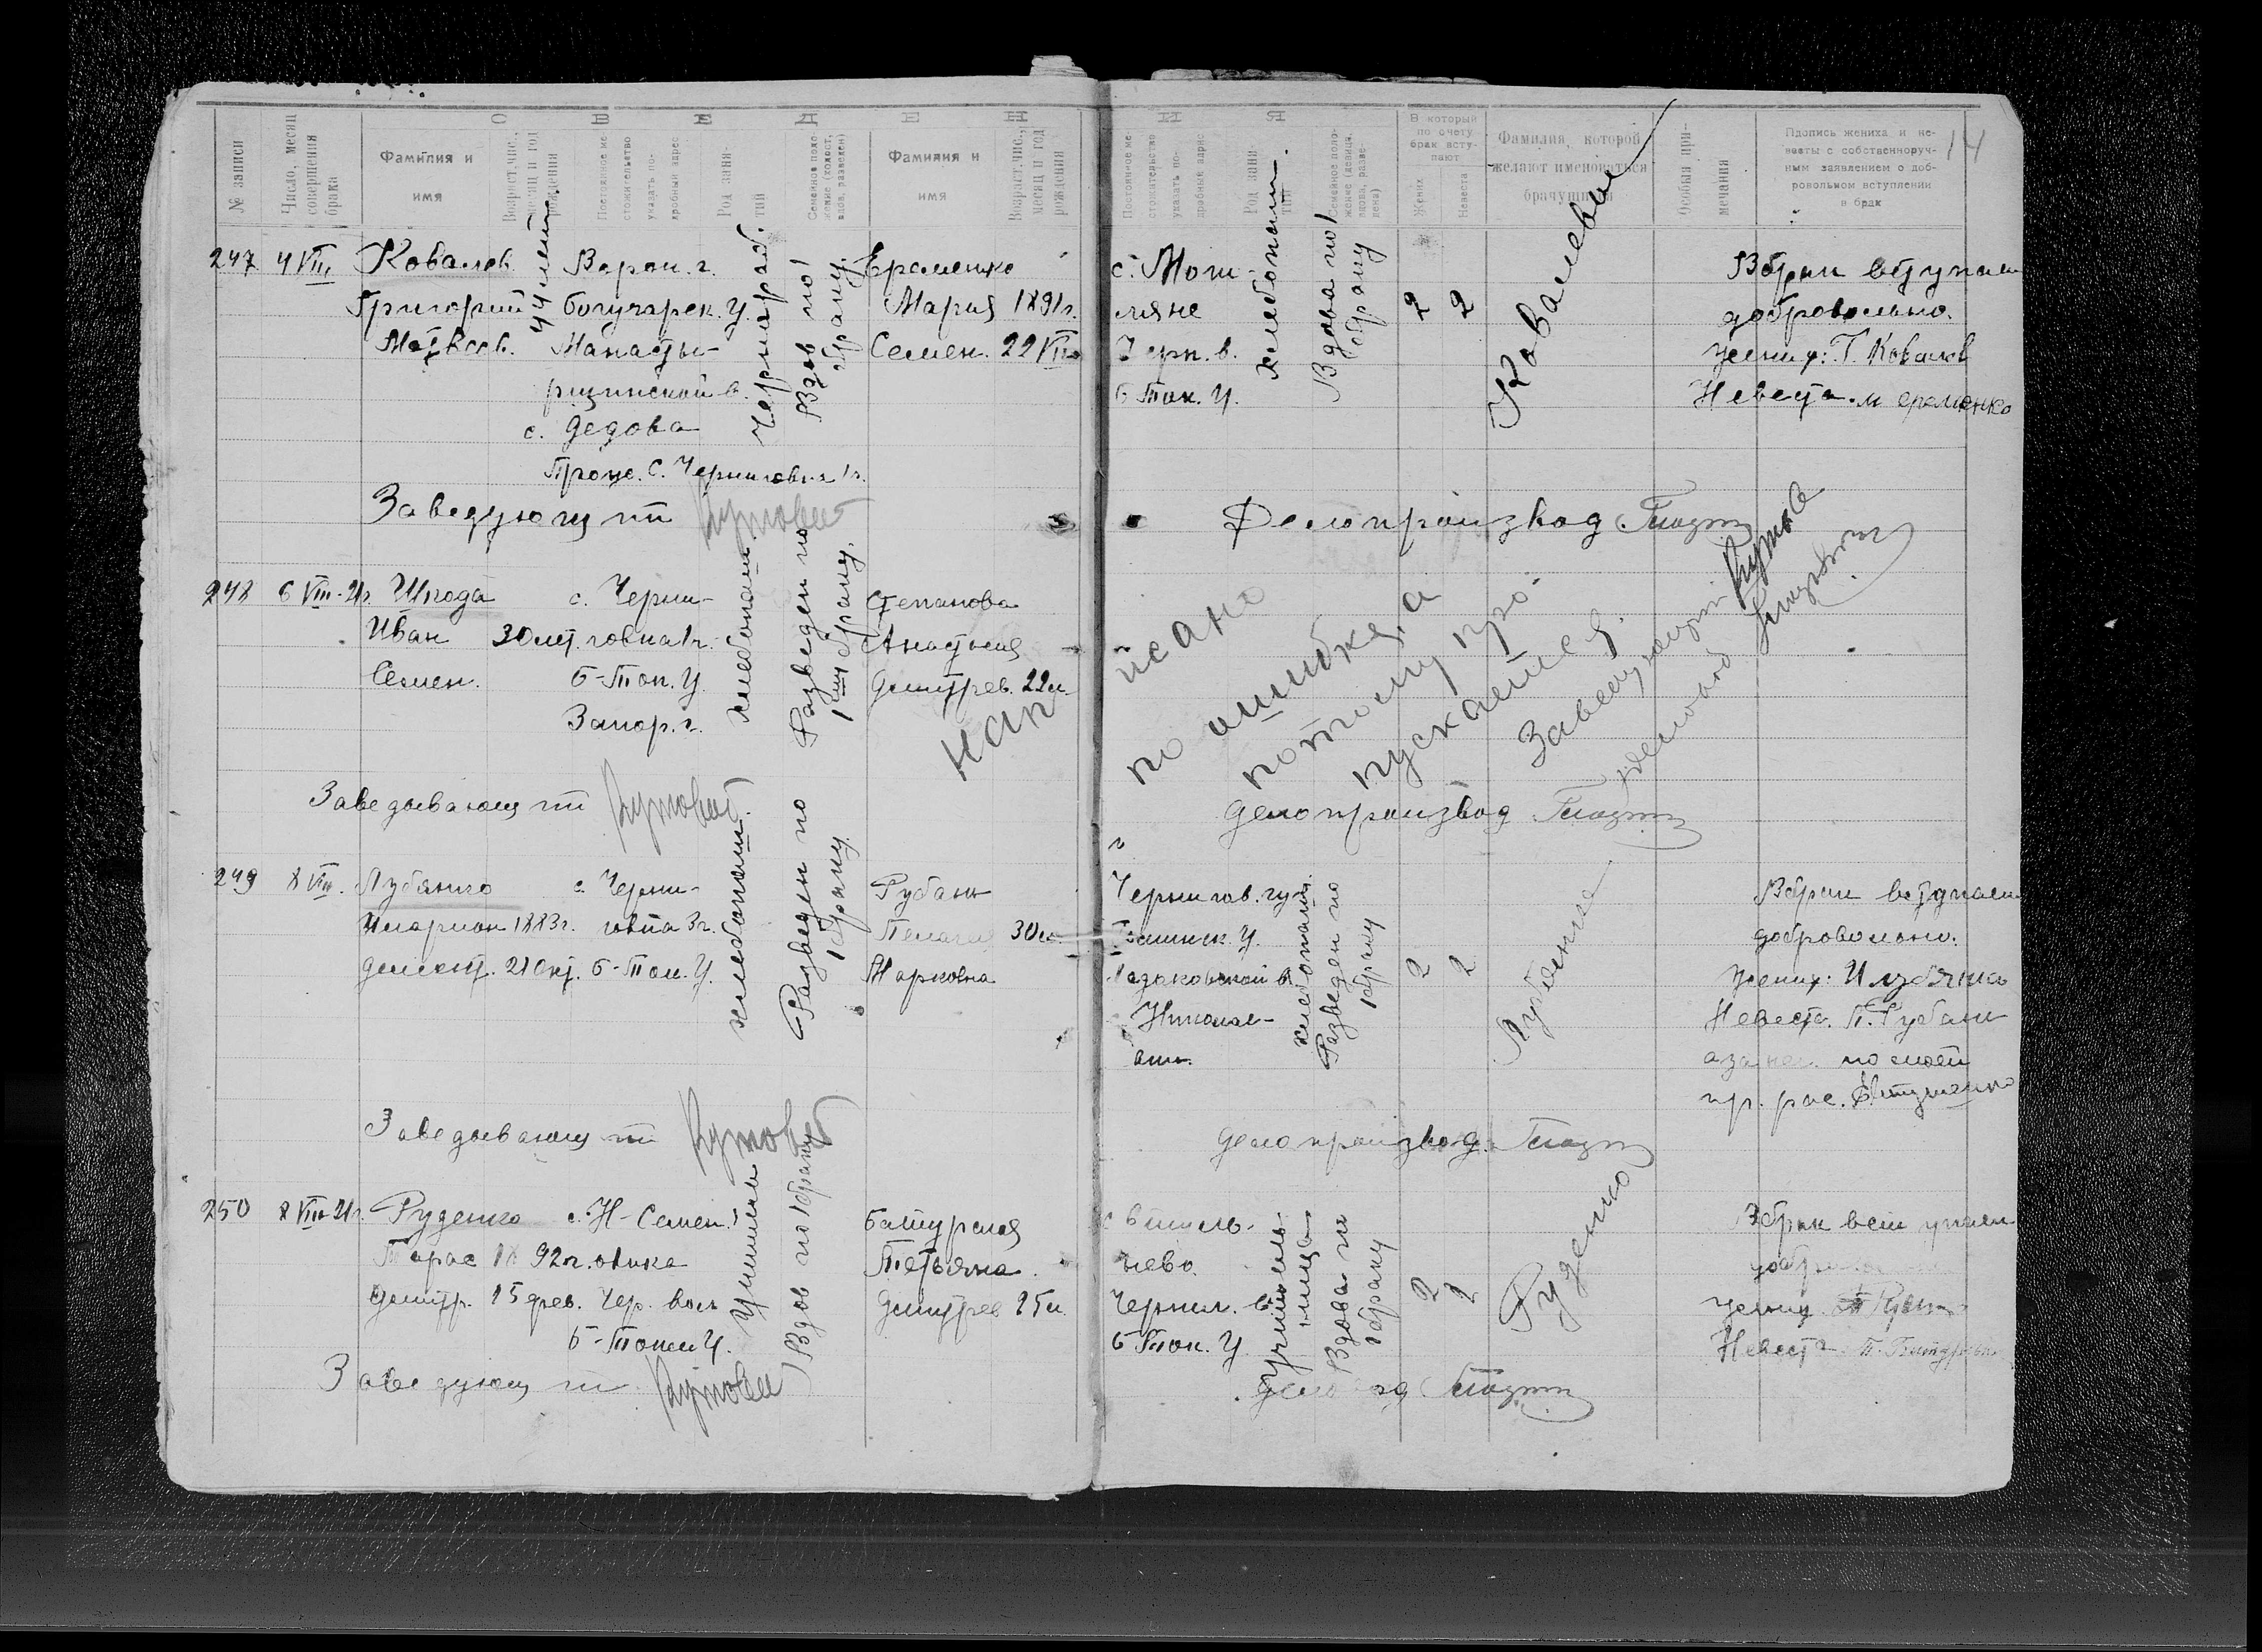 С В Е Д Е Н И Я
14
№ записи
Число, месяц совершения брака
Фамилия и имя
Возраст, чис., месяц и год рождения
Постоянное местожительство указать подробный адрес
Род занятий
Семейное положение (холост, вдов, разведен)
Фамилия и имя
Возраст, чис., месяц и год рождения
Постоянное местожительство указать подробные адрис
Род занятий
Семейное положение (девица, вдова, разведена)
В который по счету брак вступают
Жених
Невеста
Фамилия, которой желают именоваться брачущиися
Особыи примечания
Пдопись жениха и невесты с собственноручным заявлением о добровольном вступлении в брак
247 4 VIII
Ковалев
Григорий
Матвеев.
44 лет
Ворон. г.
Богучарск. У.
Манасты-
рщинской в.
с. Дедова
Прож. С. Черниговка 1 г.
Чернораб.
Вдов по 1 браку.
Еременко
Мария 1891 г.
Семен. 22 VII
с. Мог-
ляне
Черн. в.
б Ток. У.
хлебопаш.
Вдова по 1 браку
2 2
Ковалевы
В брак вступаем
добровольно.
Жених: Г. Ковалев
Невеста. м еременко
Заведующ пп Кутовой
Делопроизвод.
248 6 VIII-21 г.
Шкода
Иван 30 лет.
Семен.
с. Черни-
говка 1 г.
б-Ток. У.
Запор. г.
хлебопаш.
Разведен по 1 му браку.
Степанова
Анастасия
Дмитрев. 22 л.
написано
по ошибке, а
потому про-
пускается.
Заведующ пп Кутово
деловод
Заведывающ пп Кутовой
делопроизвод
249 8 VIII.
Лубянко
Иларион 1883 г.
Демент. 21 Окт.
с. Черни-
говка 3 г.
б-Ток. У.
хлебопаш.
Разведен по 1 браку
Рубан
Пелагия 30 л.
Марковна
Чернигов. губ.
Николае-
вки.
хлебопаш.
Разведен по 1 браку
2 2
Лубянко
В брак вступаем
добровольно.
Жених: И Лубянко
Невеста. П. Рубан
а за нею по моей
пр. рас. Евтушенко
Заведывающ пп Кутовой
делопроизвод.
250 8 VIII-21 г.
Руденко
Тарас 1892 г.
Дмитр. 15 фев.
с. Н-Семен-
овика
Чер. вол
б-Токм У.
Учитель
Вдов по 1 браку
Батурская
Татьяна
Дмитрев 25 л.
Чернил. в.
б Ток. У
учительница
Вдова по 1 браку
2 2
Руденко
В брак вступаем
Жених
Невеста Т. Батурская
Заведующ пп Кутовой